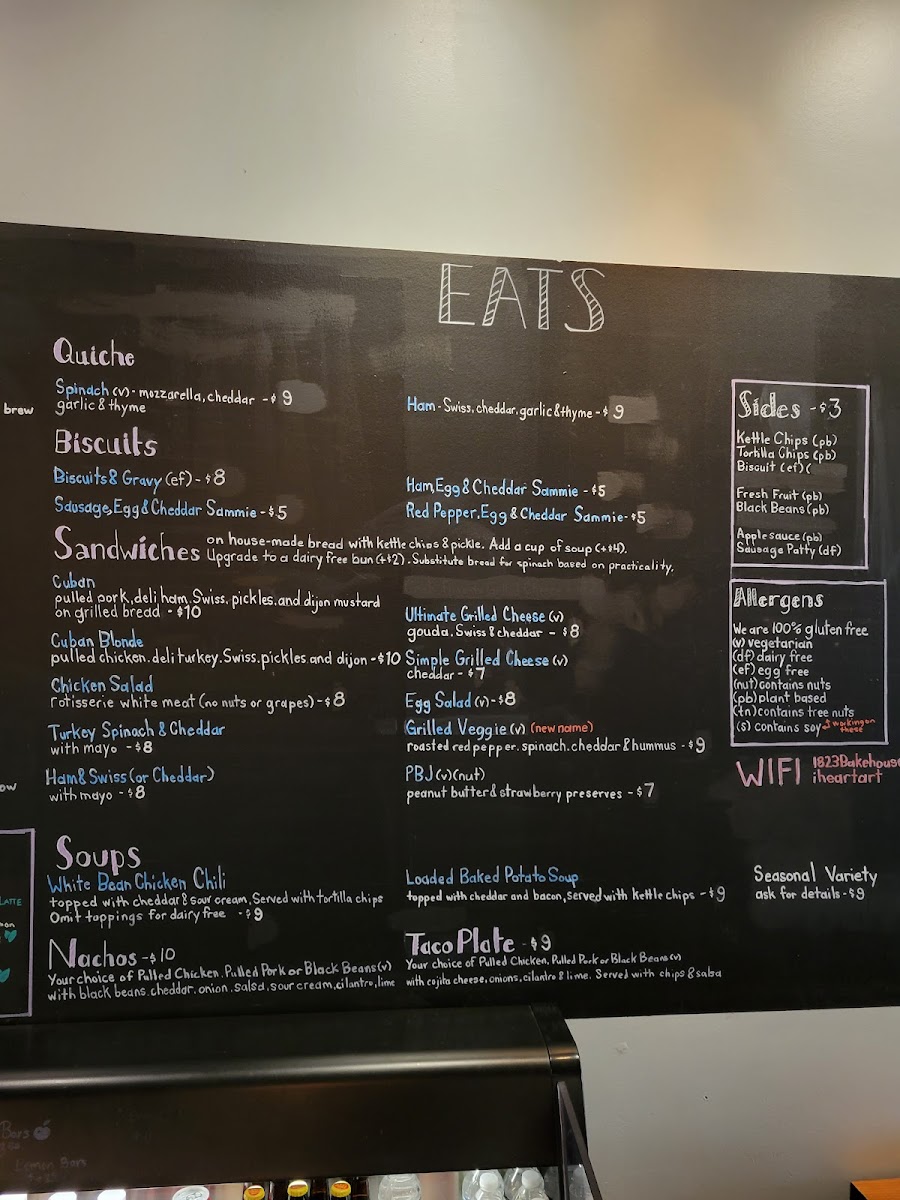 EATS
Quiche
Spinach (v) - mozzarella, cheddar - $9
garlic & thyme
Ham - Swiss, cheddar, garlic & thyme - $9
Biscuits
Biscuits & Gravy (ef) - $8
Ham, Egg & Cheddar Sammie - $5
Sausage, Egg & Cheddar Sammie - $5
Red Pepper, Egg & Cheddar Sammie - $5
Sandwiches on house-made bread with kettle chips & pickle. Add a cup of soup (+$4).
Upgrade to a dairy free bun (+$2). Substitute bread for spinach based on practicality.
Cuban
pulled pork, deli ham, Swiss, pickles, and dijon mustard
on grilled bread - $10
Cuban Blonde
pulled chicken, deli turkey, Swiss, pickles, and dijon - $10
Chicken Salad
rotisserie white meat (no nuts or grapes) - $8
Turkey Spinach & Cheddar
with mayo - $8
Ham & Swiss (or Cheddar)
with mayo - $8
Ultimate Grilled Cheese (v)
gouda, Swiss & cheddar - $8
Simple Grilled Cheese (v)
cheddar - $7
Egg Salad (v) - $8
Grilled Veggie (v) (new name)
roasted red pepper, spinach, cheddar & hummus - $9
PBJ (v)(nut)
peanut butter & strawberry preserves - $7
Soups
White Bean Chicken Chili
topped with cheddar & sour cream, Served with tortilla chips
Omit toppings for dairy free - $9
Loaded Baked Potato Soup
topped with cheddar and bacon, served with kettle chips - $9
Seasonal Variety
ask for details - $9
Nachos - $10
Your choice of Pulled Chicken, Pulled Pork or Black Beans (v)
with black beans, cheddar, onion, salsa, sour cream, cilantro, lime
Taco Plate - $9
Your choice of Pulled Chicken, Pulled Pork or Black Beans (v)
with cojita cheese, onions, cilantro & lime. Served with chips & salsa
Sides - $3
Kettle Chips (pb)
Tortilla Chips (pb)
Biscuit (ef) (
Fresh Fruit (pb)
Black Beans (pb)
Applesauce (pb)
Sausage Patty (df)
Allergens
We are 100% gluten free
(v) vegetarian
(df) dairy free
(ef) egg free
(nut) contains nuts
(pb) plant based
(tn) contains tree nuts
(s) contains soy working on
these
WIFI 1823Bakehouse
iheartart
brew
ow
LATTE
Bars
Lemon Bars